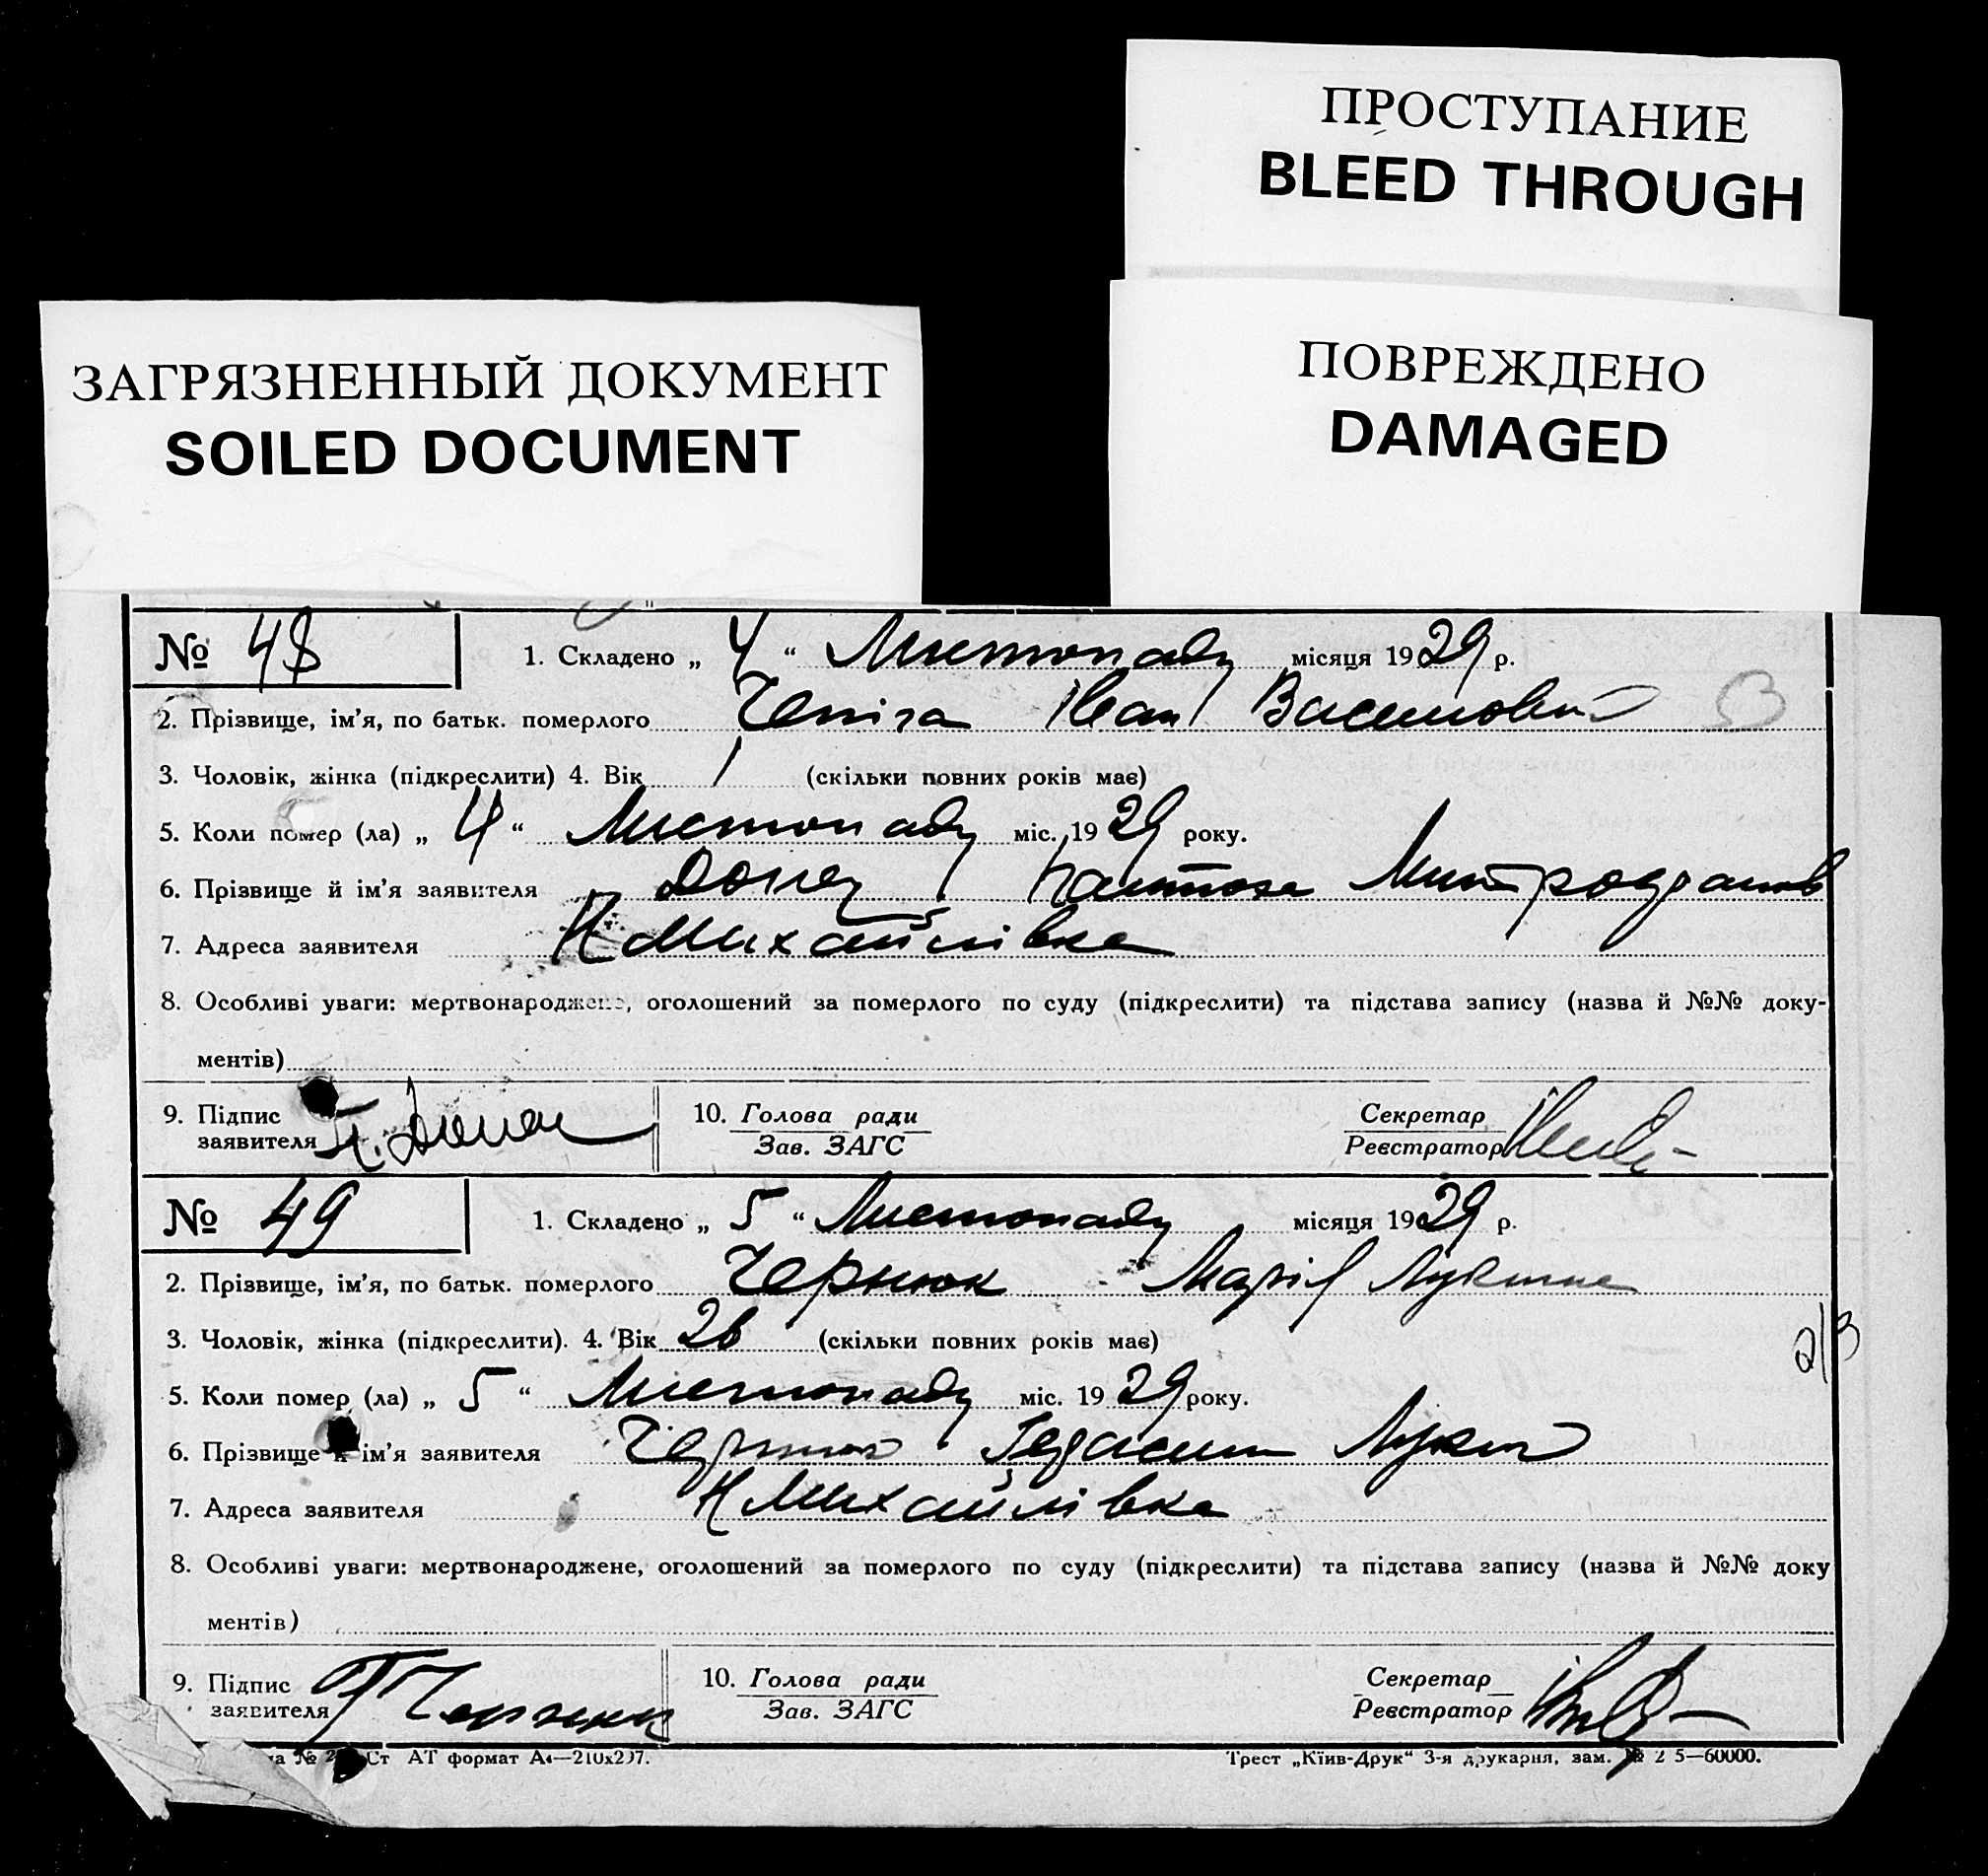 ПРОСТУПАНИЕ
BLEED THROUGH
ЗАГРЯЗНЕННЫЙ ДОКУМЕНТ
SOILED DOCUMENT
ПОВРЕЖДЕНО
DAMAGED
№ 48 1. Складено „ 4 “ Листопаду місяця 1929 р.
2. Прізвище, ім'я, по батьк. померлого Чепіга Іван Васильович
3. Чоловік, жінка (підкреслити) 4. Вік 1 (скільки повних років має)
5. Коли помер (ла) „ 4 “ Листопаду міс. 1929 року.
6. Прізвище й ім'я заявителя Донец Митрофанов
7. Адреса заявителя Н Михайлівка
8. Особливі уваги: мертвонароджене, оголошений за померлого по суду (підкреслити) та підстава запису (назва й №№ доку-
ментів)
9. Підпис заявителя 10. Голова ради Секретар
Зав. ЗАГС Реєстратор
№ 49 1. Складено „ 5 “ Листопаду місяця 1929 р.
2. Прізвище, ім'я, по батьк. померлого Чернюк Марія Лукична
3. Чоловік, жінка (підкреслити). 4. Вік 26 (скільки повних років має)
2/3
5. Коли помер (ла) „ 5 “ Листопаду міс. 1929 року.
6. Прізвище й ім'я заявителя Чернюк Герасим Лукич
7. Адреса заявителя Н Михайлівка
8. Особливі уваги: мертвонароджене, оголошений за померлого по суду (підкреслити) та підстава запису (назва й №№ доку
ментів)
9. Підпис заявителя 10. Голова ради Секретар
Зав. ЗАГС Реєстратор
Ст АТ формат А4—210х297. Трест „Київ-Друк“ 3-я друкарня, зам. № 5—60000.